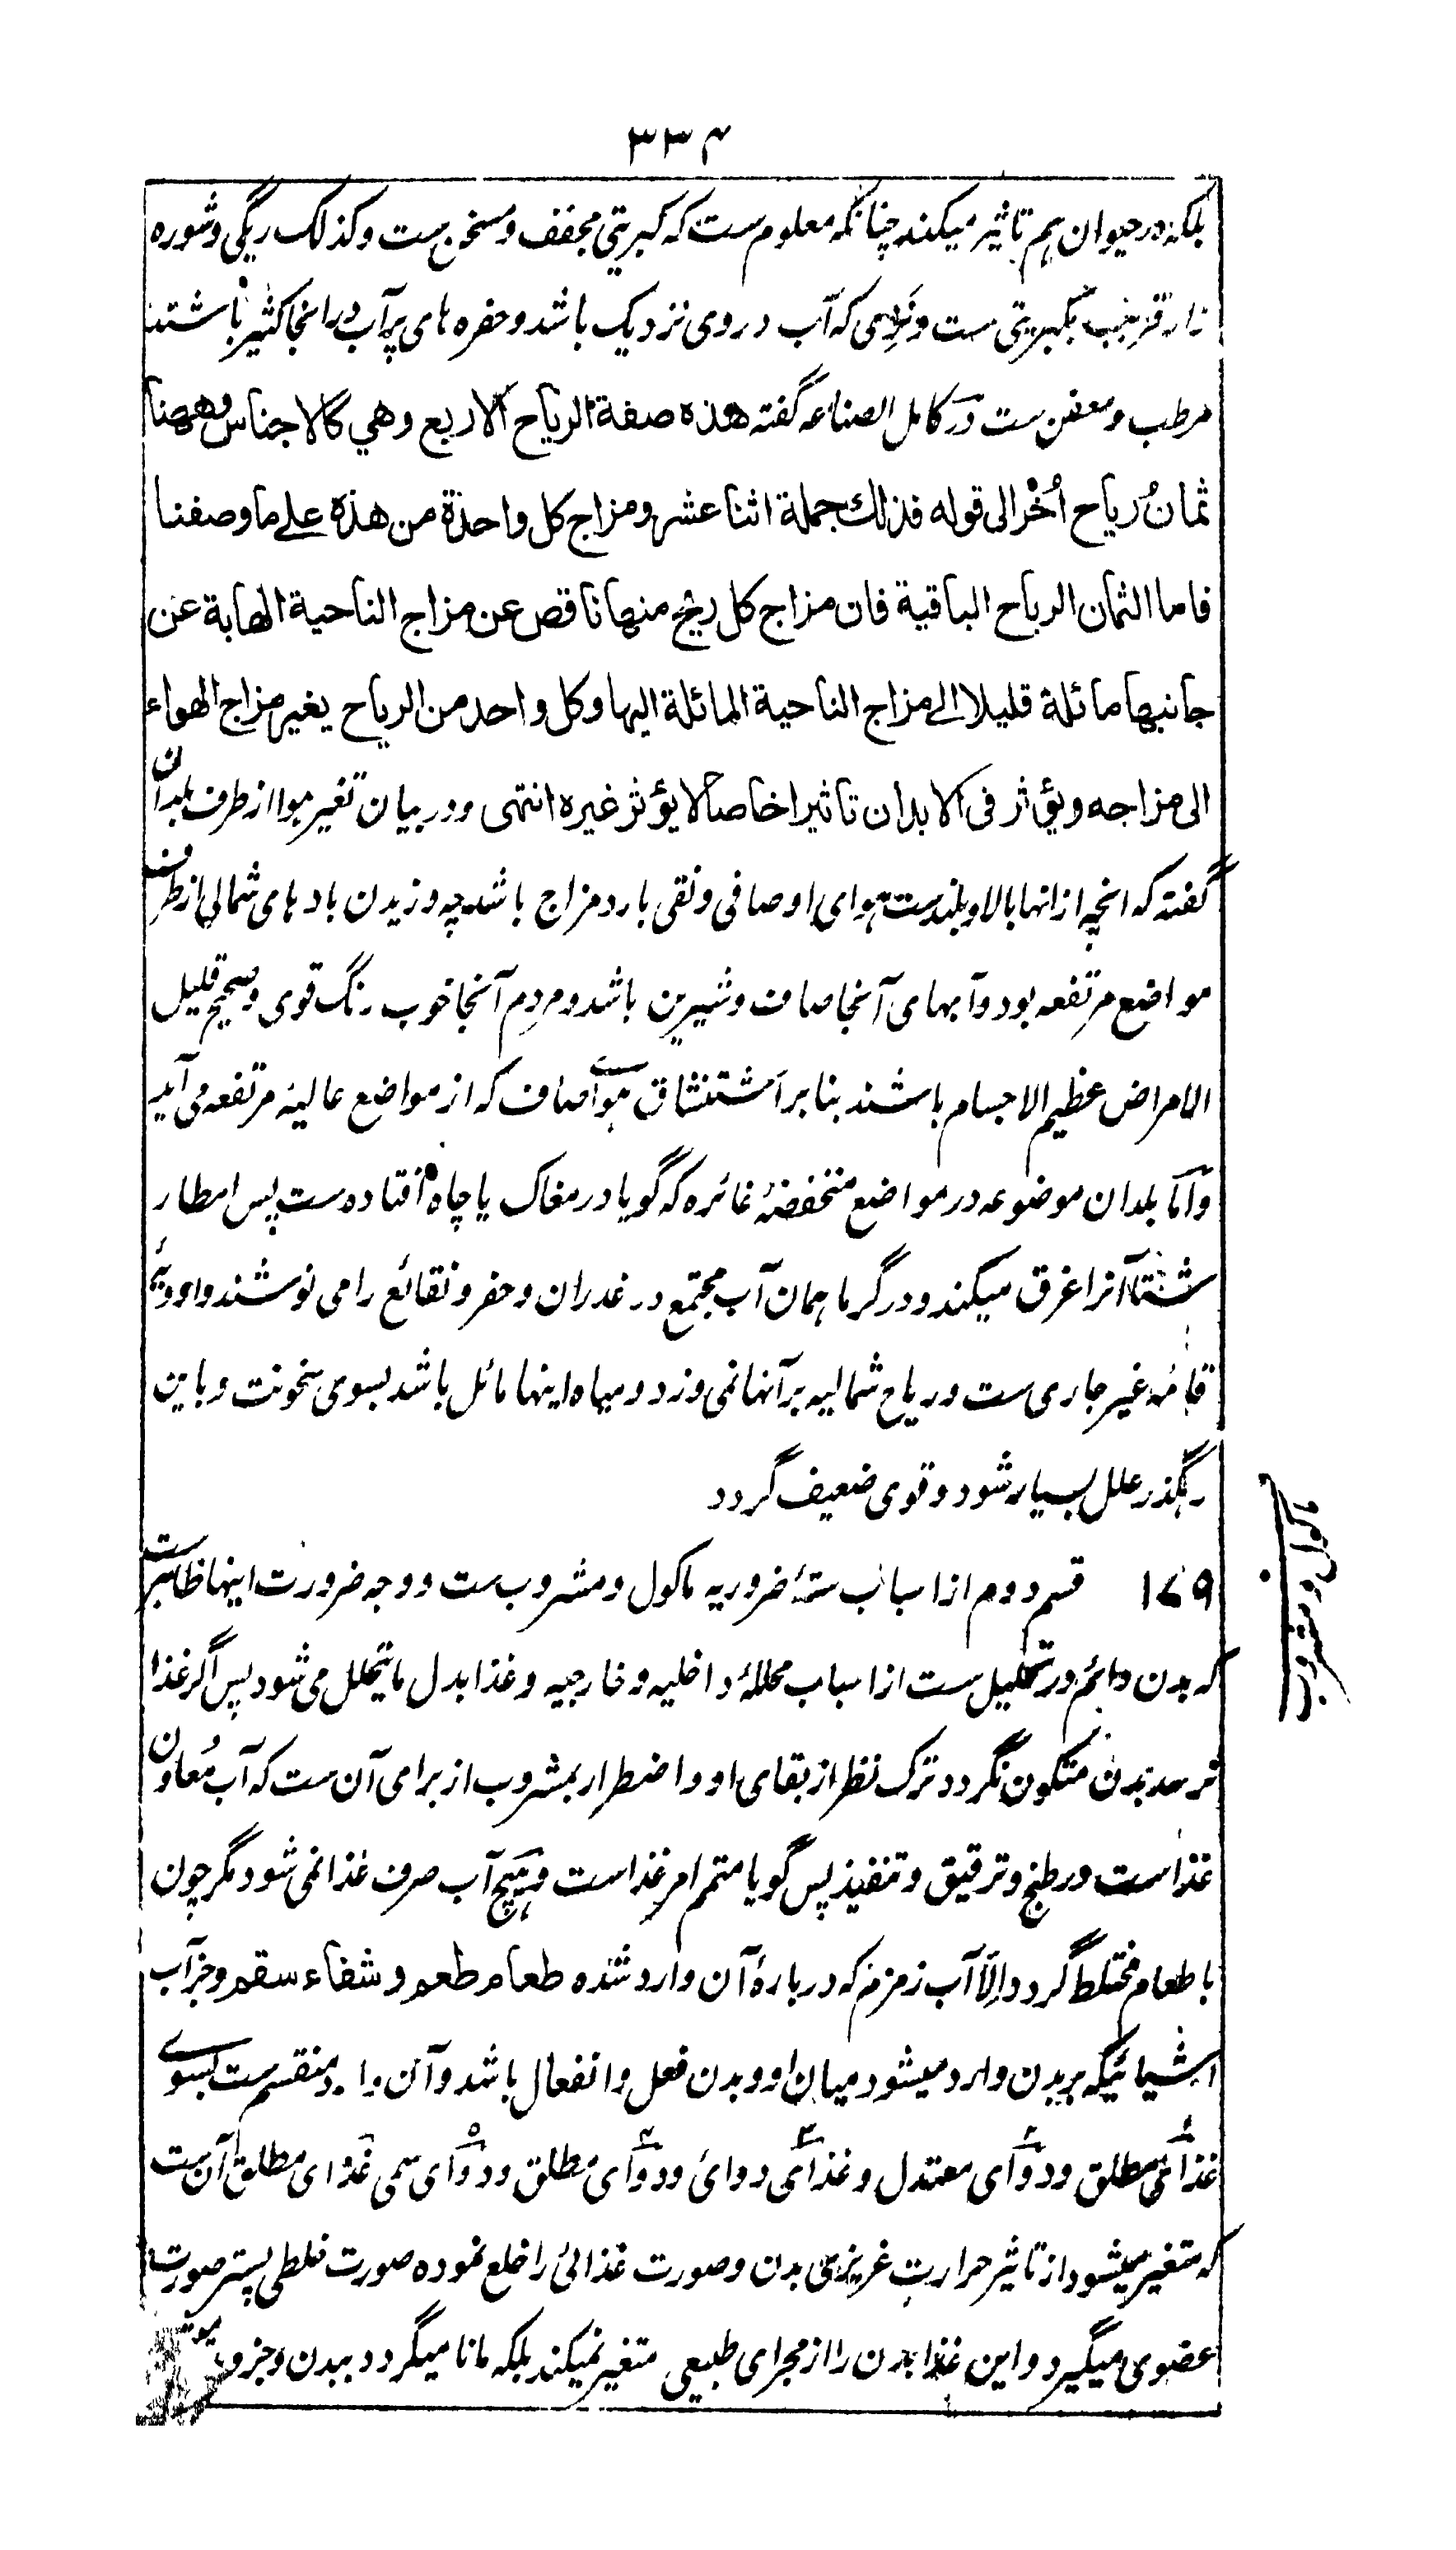 ۳۳۴
بلکه در حیوان هم تاثیر میکند چنانکه معلوم ست که کبریتی مجفف و مسخن ست و کذلک ریگی و شوره
زار قریب بکبریتی ست و نزہی که آب در وی نزدیک باشد و حفره های پر آب در انجا کثیر باشند
مرطب و معفن ست و در کامل الصناعه گفته هذه صفة الریاح الاربع وهي کالاجناس وههنا
ثمانُ ریاح اُخْر الی قوله فذلك جملة اثنا عشر ومزاج کل واحدة من هذه علے ما وصفنا
فاما الثمان الریاح الباقیة فان مزاج کل ریح منها ناقص عن مزاج الناحیة الهابة عن
جانبها مائلة قلیلا الے مزاج الناحیة المائلة الیها وکل واحد من الریاح یغیر مزاج الهواء
الی مزاجه ویؤثر فی الابدان تاثیرا خاصا لا یؤثر غیره انتهی و در بیان تغیر هوا از طرف بلدان
گفته که انچه از انها بالا و بلند ست هوای او صافی و نقی بارد مزاج باشد چه وزیدن باد های شمالی از طرف
مواضع مرتفعه بود و آبهای آنجا صاف و شیرین باشد و مردم آنجا خوب رنگ قوی و صحیح قلیل
الامراض عظیم الاجسام باشند بنابر استنشاق هوائے صاف که از مواضع عالیه مرتفعه می آید
و اما بلدان موضوعه در مواضع منخفضهٔ غائره که گویا در مغاک یا چاه افتاده ست پس امطار
شتا آنرا غرق میکند و در گرما همان آب مجتمع در غدران و حفر و نقائع را می نوشند و اودیهٔ
قائمه غیر جاری ست و ریاح شمالیه بر آنها نمی وزد و میاه اینها مائل باشد بسوی سخونت و باین
رهگذر علل بسیار شود و قوی ضعیف گردد
۱۷۹ قسم دوم از اسباب ستهٔ ضروریه ماکول و مشروب ست و وجه ضرورت اینها ظاهر ست
که بدن دائم در تحلیل ست از اسباب محللهٔ داخلیه و خارجیه و غذا بدل ما یتحلل می شود پس اگر غذا
نرسد بدن متکون نگردد ترک نظر از بقای او و اضطرار بمشروب از برای آن ست که آب مُعاون
غذاست در طبخ و ترقیق و تنفیذ پس گویا متمم امر غذاست و هیچ آب صرف غذا نمی شود مگر چون
با طعام مختلط گردد و اِلّا آب زمزم که دربارهٔ آن وارد شده طعام طعم و شفاء سقم و جز آب
اشیائیکه بر بدن وارد میشود میان او و بدن فعل و انفعال باشد و آن وارد منقسم ست بسوے
غذائی مطلق و دوای معتدل و غذائی دوائی و دوای مطلق و دوای سمی غذای مطلق آن ست
که متغیر میشود از تاثیر حرارت غریزی بدن و صورت غذائی را خلع نموده صورت خلطی پستر صورت
عضوی میگیرد و این غذا بدن را از مجرای طبیعی متغیر نمیکند بلکه مانا میگردد ببدن و جزو
ماکول و مشروب